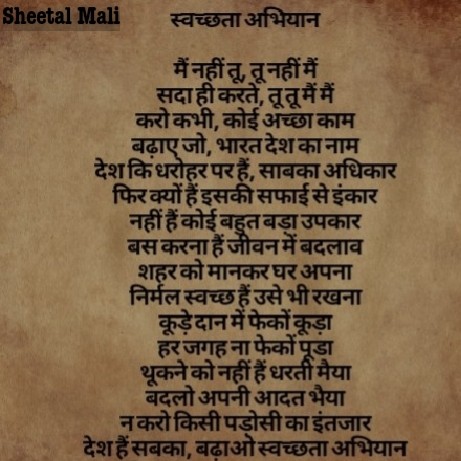 Sheetal Mali
स्वच्छता अभियान
मैं नहीं तू, तू नहीं मैं
सदा ही करते, तू तू मैं मैं
करो कभी, कोई अच्छा काम
बढ़ाए जो, भारत देश का नाम
देश कि धरोहर पर हैं, साबका अधिकार
फिर क्यों हैं इसकी सफाई से इंकार
नहीं हैं कोई बहुत बड़ा उपकार
बस करना हैं जीवन में बदलाव
शहर को मानकर घर अपना
निर्मल स्वच्छ हैं उसे भी रखना
कूड़े दान में फेकों कूड़ा
हर जगह ना फेकों पूडा
थूकने को नहीं हैं धरती मैया
बदलो अपनी आदत भैया
न करो किसी पड़ोसी का इंतजार
देश हैं सबका, बढ़ाओ स्वच्छता अभियान